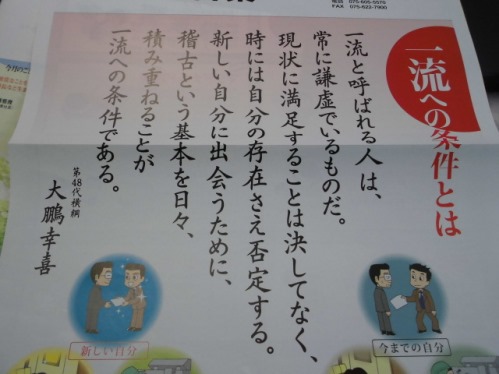 075-605-5579
FAX 075-622-7900
一流への条件とは
一流と呼ばれる人は、
常に謙虚でいるものだ。
現状に満足することは決してなく、
時には自分の存在さえ否定する。
新しい自分に出会うために、
稽古という基本を日々、
積み重ねることが
一流への条件である。
第48代横綱
大鵬幸喜
今までの自分
新しい自分